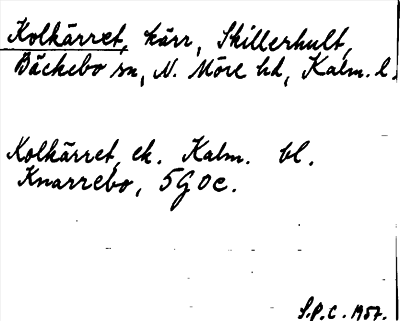 Kolkärret, kärr, Skillerhult,
Bäckebo sn, N. Möre hd, Kalm. l.
Kolkärret, ek. Kalm. bl.
Knarrebo, 5G0c.
S.P.C. 1957.